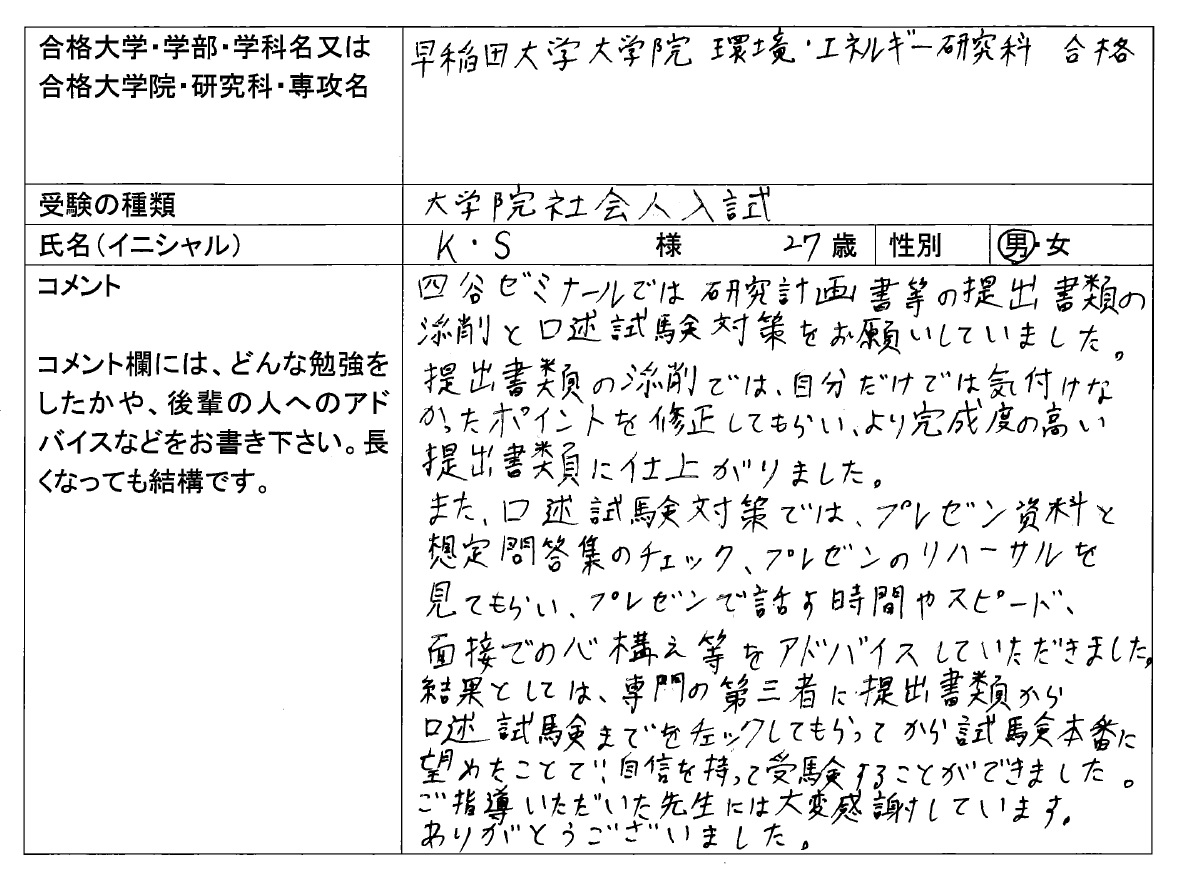 合格大学・学部・学科名又は
合格大学院・研究科・専攻名
早稲田大学大学院 環境・エネルギー研究科 合格
受験の種類
大学院社会人入試
氏名(イニシャル)
K・S 様 27歳 性別 男・女
コメント
コメント欄には、どんな勉強を
したかや、後輩の人へのアド
バイスなどをお書き下さい。長
くなっても結構です。
四谷ゼミナールでは研究計画書等の提出書類の
添削と口述試験対策をお願いしていました。
提出書類の添削では、自分だけでは気付けな
かったポイントを修正してもらい、より完成度の高い
提出書類に仕上がりました。
また、口述試験対策では、プレゼン資料と
想定問答集のチェック、プレゼンのリハーサルを
見てもらい、プレゼンで話す時間やスピード、
面接での心構え等をアドバイスしていただきました。
結果としては、専門の第三者に提出書類から
口述試験までをチェックしてもらってから試験本番に
望めたことで、自信を持って受験することができました。
ご指導いただいた先生には大変感謝しています。
ありがとうございました。